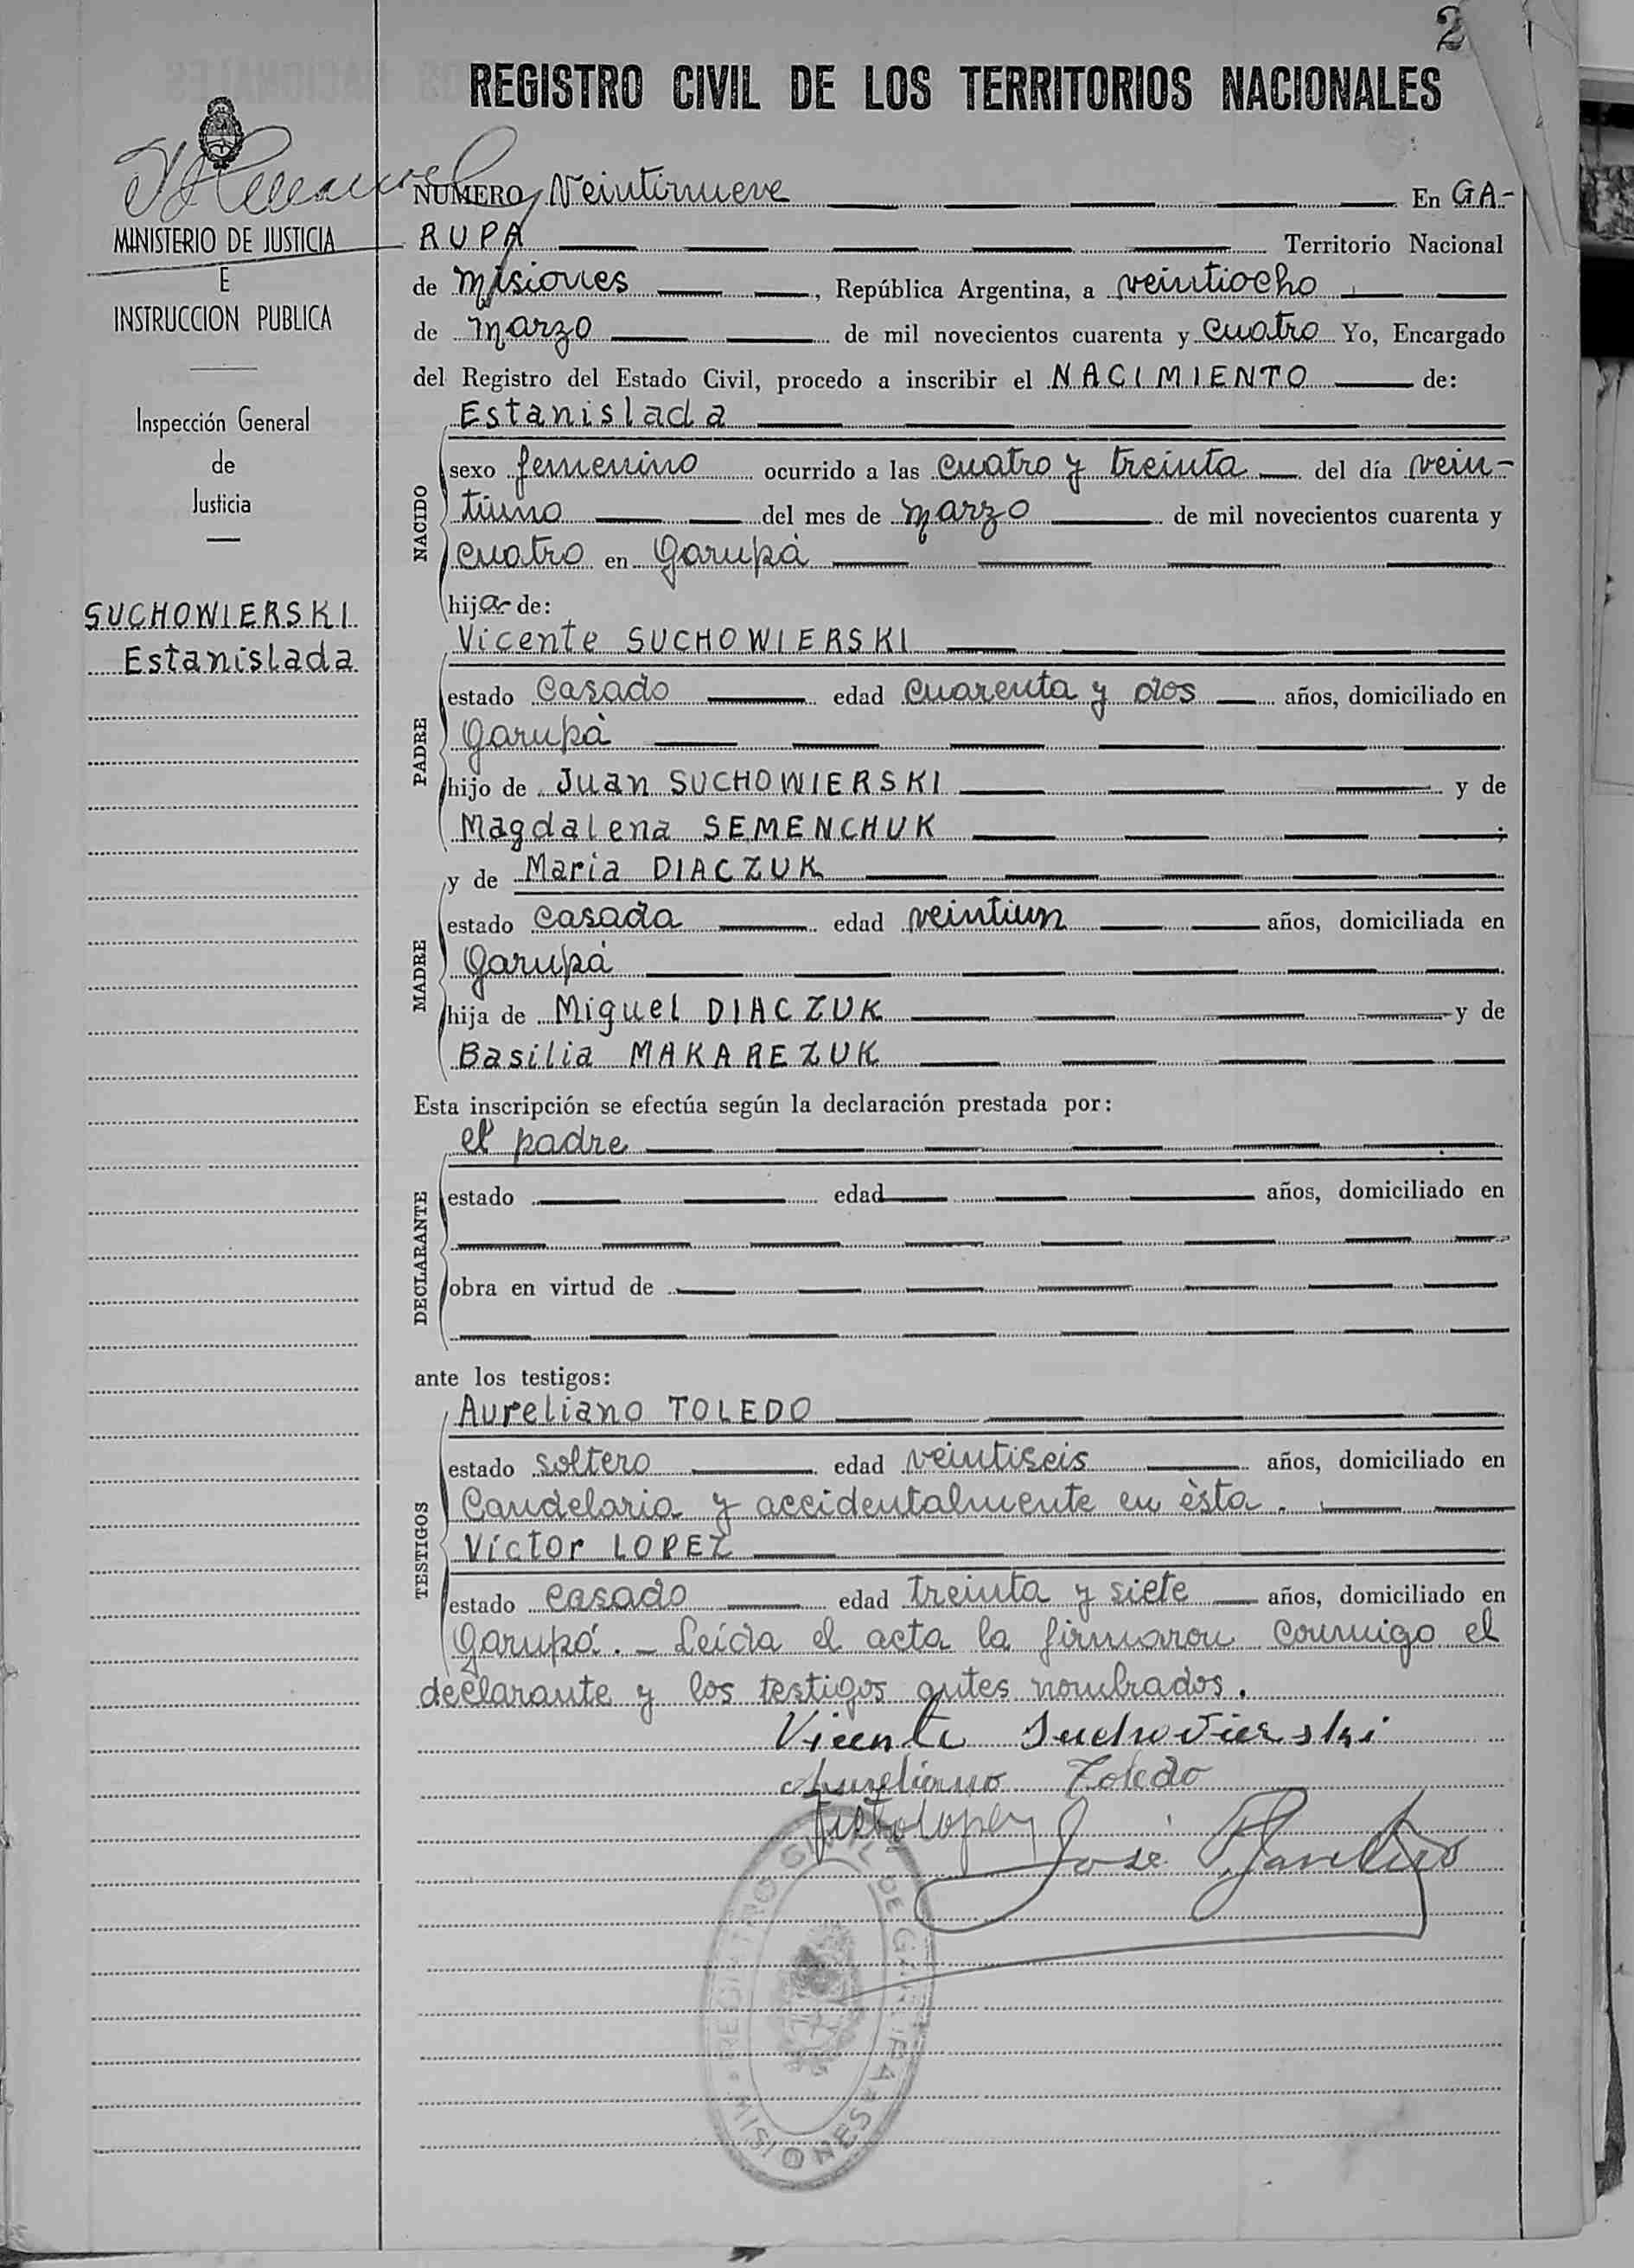 2
REGISTRO CIVIL DE LOS TERRITORIOS NACIONALES
MINISTERIO DE JUSTICIA
E
INSTRUCCION PUBLICA
Inspección General
de
Justicia
SUCHOWIERSKI
Estanislada
NUMERO Veintinueve En GA-
RUPA Territorio Nacional
de Misiones, República Argentina, a veintiocho
de marzo de mil novecientos cuarenta y cuatro Yo, Encargado
del Registro del Estado Civil, procedo a inscribir el NACIMIENTO de:
Estanislada
NACIDO
sexo femenino ocurrido a las cuatro y treinta del día vein-
tiuno del mes de marzo de mil novecientos cuarenta y
cuatro en Garupá
hija de:
Vicente SUCHOWIERSKI
PADRE
estado casado edad cuarenta y dos años, domiciliado en
Garupà
hijo de Juan SUCHOWIERSKI y de
Magdalena SEMENCHUK;
y de Maria DIACZUK
MADRE
estado casada edad veintiun años, domiciliada en
Garupá
hija de Miguel DIACZUK y de
Basilia MAKAREZUK
Esta inscripción se efectúa según la declaración prestada por:
el padre
DECLARANTE
estado edad años, domiciliado en
obra en virtud de
ante los testigos:
Aureliano TOLEDO
TESTIGOS
estado soltero edad veintiseis años, domiciliado en
Candelaria y accidentalmente en èsta.
Víctor LOPEZ
estado casado edad treinta y siete años, domiciliado en
Garupá. - Leída el acta la firmaron conmigo el
declarante y los testigos antes nombrados.
Vicente Suchovierski
Aureliano Toledo
Victor Lopez José
REGISTRO CIVIL DE GARUPA MISIONES